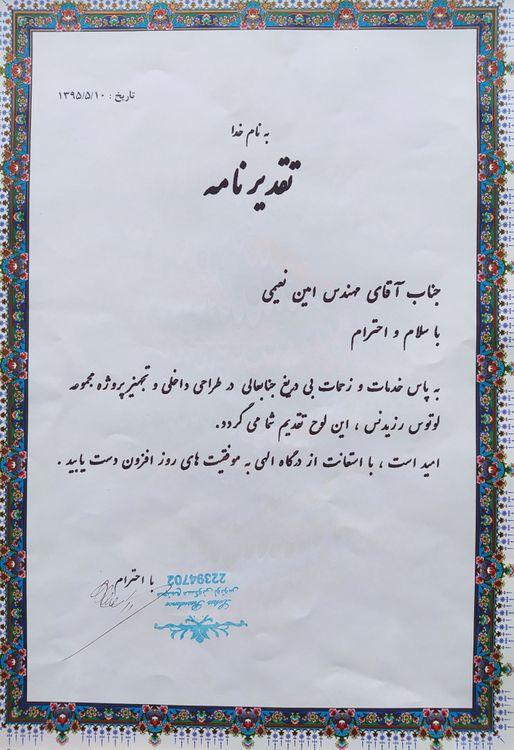 تاریخ : ۱۳۹۵/۵/۱۰
به نام خدا
تقدیر نامه
جناب آقای مهندس امین نعیمی
با سلام و احترام
به پاس خدمات و زحمات بی دریغ جنابعالی در طراحی داخلی و تجهیز پروژه مجموعه
لوتوس رزیدنس ، این لوح تقدیم شما می گردد.
امید است ، با استعانت از درگاه الهی به موفقیت های روز افزون دست یابید .
با احترام
22394702
مجتمع مسکونی لوتوس
Lotus Residence